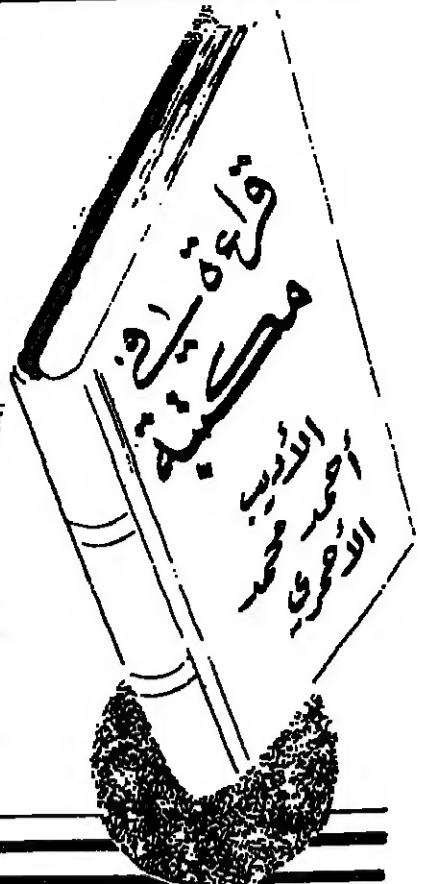 قراءة في
مكتبة
الأديب
أحمد محمد
الأحمري